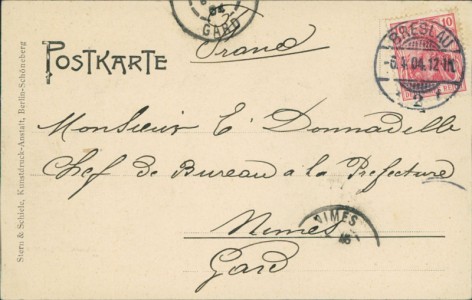 GARD
10
BRESLAU
-6.4.04.12-1N.
2
POSTKARTE
Monsieur E Donnadille
Chef de Bureau à la Prefecture
Nimes
NIMES
Gard
Stern & Schiele, Kunstdruck-Anstalt, Berlin-Schöneberg